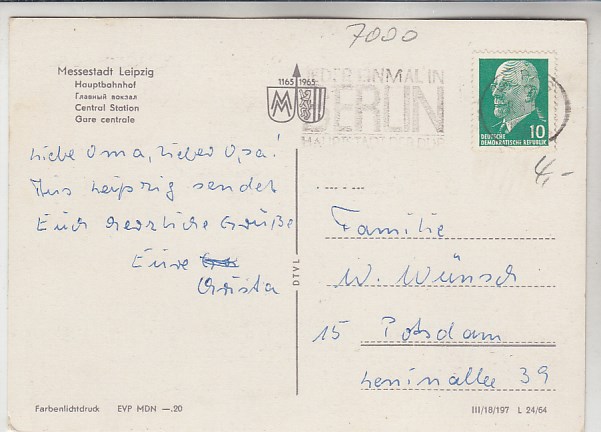 7000
Messestadt Leipzig
Hauptbahnhof
Главный вокзал
Central Station
Gare centrale
1165 1965
MM
JEDER EINMAL IN
BERLIN
HAUPTSTADT DER DDR
10
DEUTSCHE
DEMOKRATISCHE REPUBLIK
4,-
Liebe Oma, lieber Opa!
Aus Leipzig sendet
Euch herzliche Grüße
Eure
Christa
DTVL
Familie
W. Wünsch
15 Potsdam
Leninallee 39
Farbenlichtdruck EVP MDN —.20
III/18/197 L 24/64